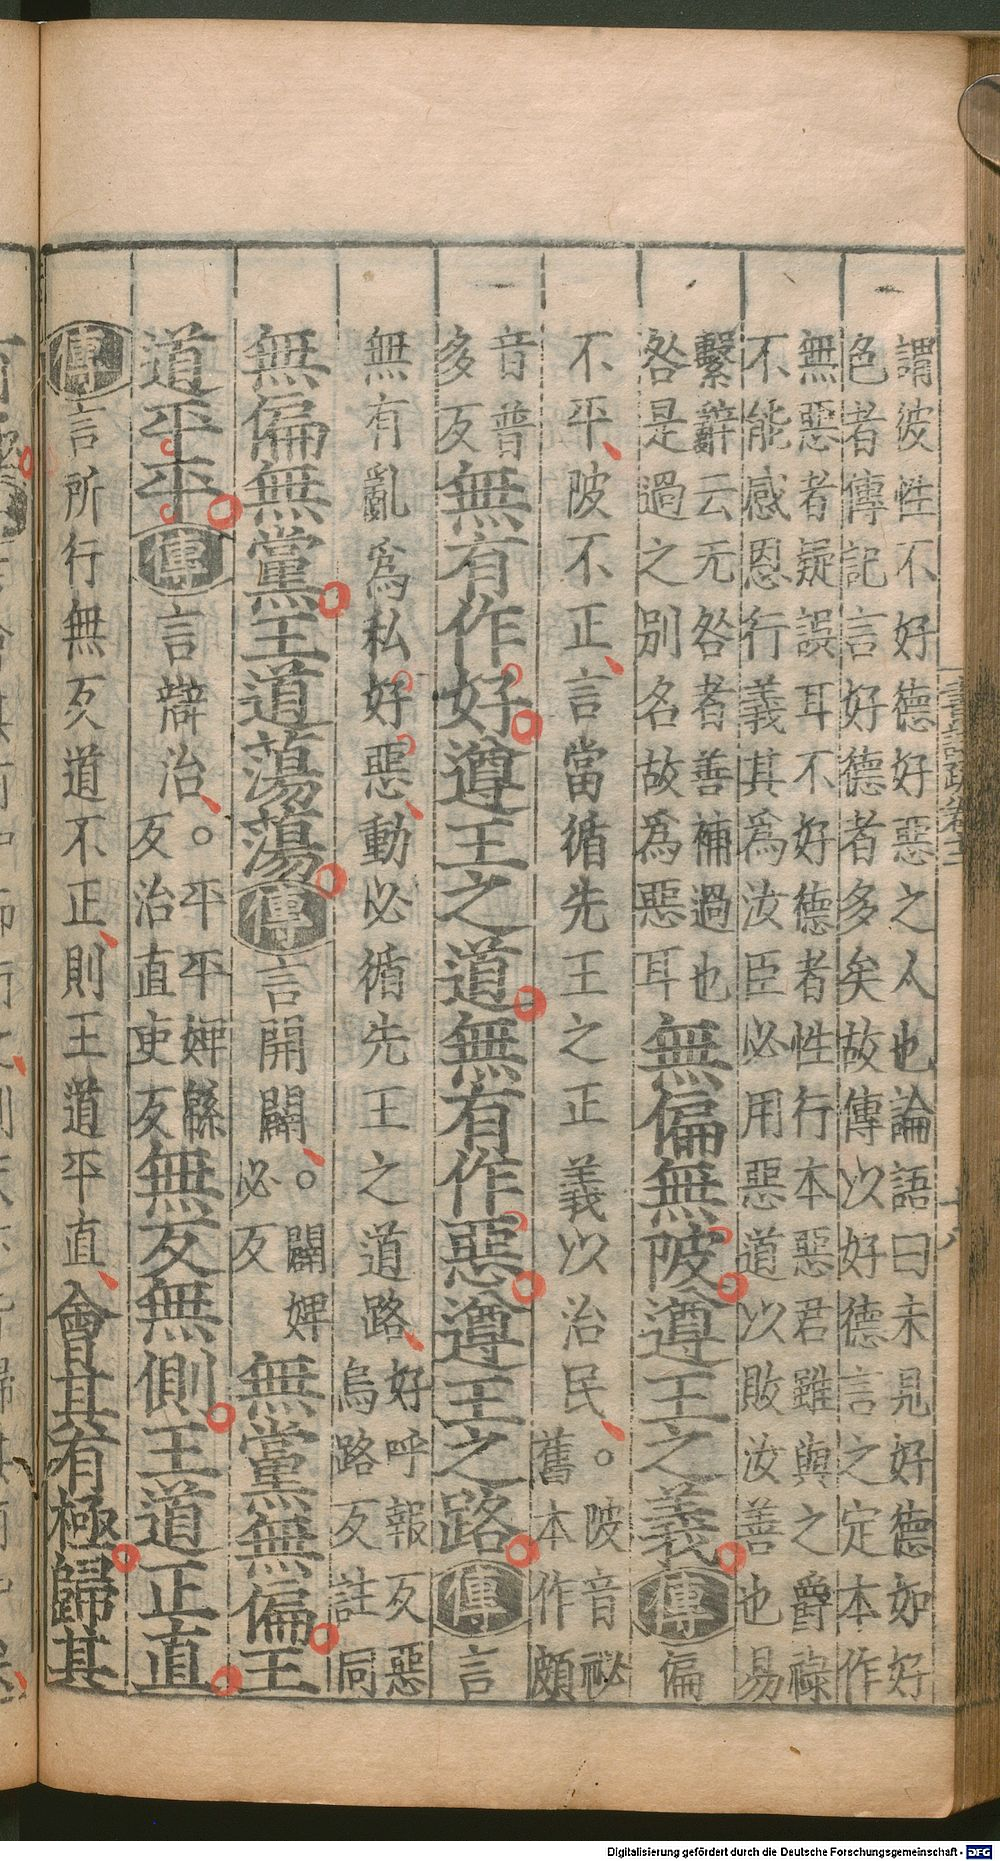 謂彼性不好德好惡之人也論語曰未見好德如好
色者傳記言好德者多矣故傳以好德言之定本作
無惡者疑誤耳不好德者性行本惡君雖與之爵祿
不能感恩行義其爲汝臣必用惡道以敗汝善也易
繫辭云无咎者善補過也
咎是過之別名故爲惡耳
無偏無陂遵王之義傳偏
不平陂不正言當循先王之正義以治民。陂音祕
舊本作頗
音普
多反
無有作好遵王之道無有作惡遵王之路傳言
無有亂爲私好惡動必循先王之道路好呼報反惡
烏路反註同
無偏無黨王道蕩蕩傳言開闢。闢婢
必反
無黨無偏王
道平平傳言辯治。平平婢緜
反治直吏反
無反無側王道正直
傳言所行無反道不正則王道平直會其有極歸其
十八
Digitalisierung gefördert durch die Deutsche Forschungsgemeinschaft - DFG